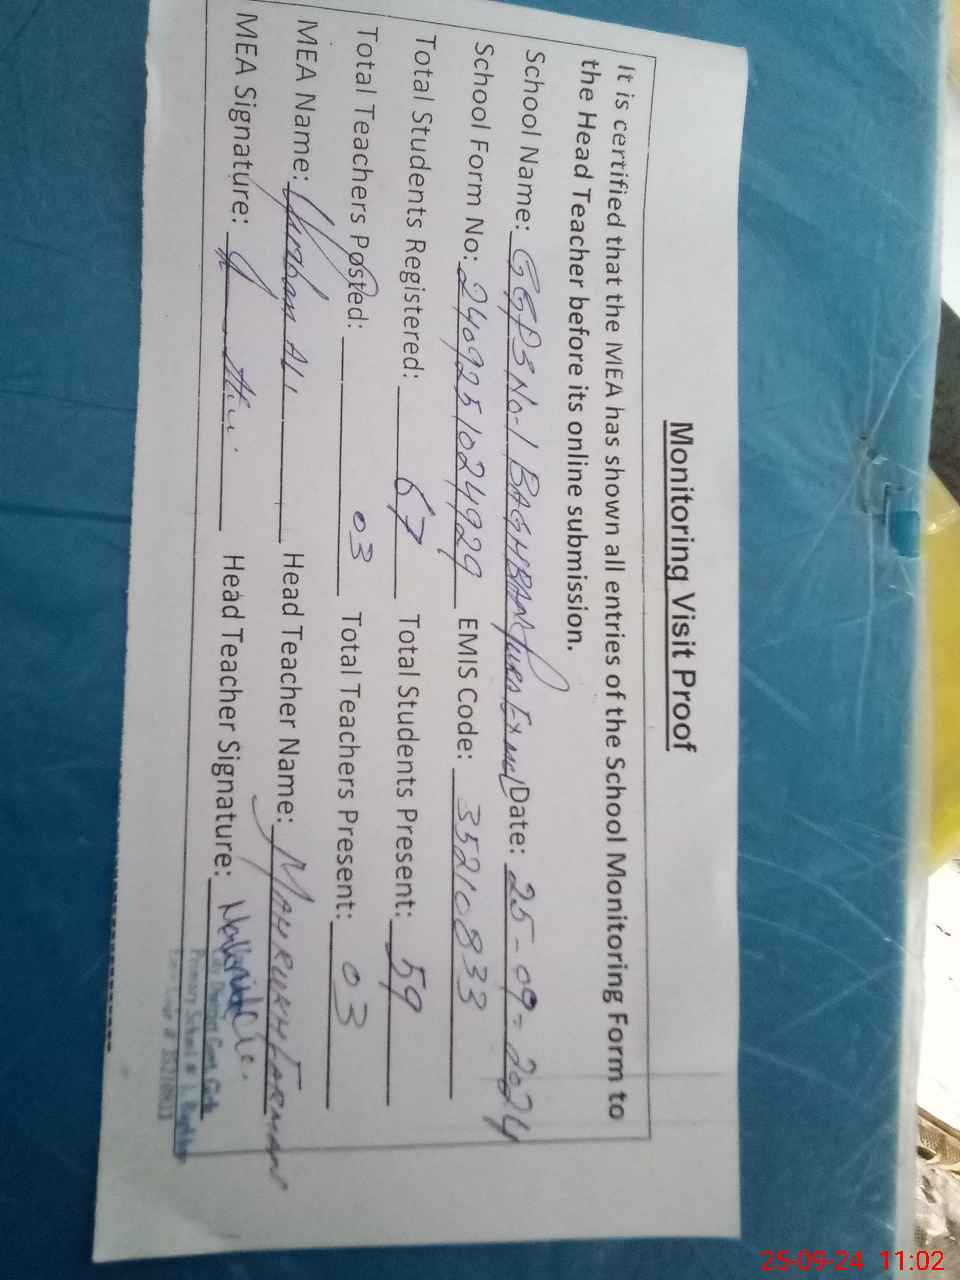 Monitoring Visit Proof
It is certified that the MEA has shown all entries of the School Monitoring Form to
the Head Teacher before its online submission.
School Name: GGPS No-1 BAGHBANPURA Date: 25-09-2024
School Form No: 2409251024929 EMIS Code: 35210833
Total Students Registered: 67 Total Students Present: 59
Total Teachers Posted: 03 Total Teachers Present: 03
MEA Name: Ali Head Teacher Name: MAHRUKH
MEA Signature: Head Teacher Signature:
Primary School # 1,
25-09-24 11:02